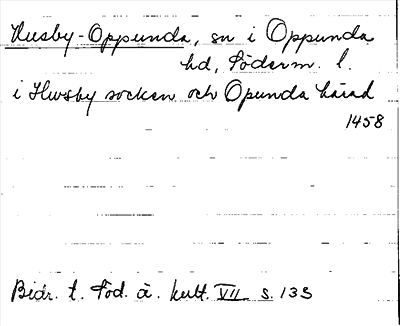 Husby-Oppunda, sn i Oppunda
hd, Söderm. l.
i Hwsby socken och Opunda härad
1458
Bidr. t. Söd. ä. kult. VII s. 133